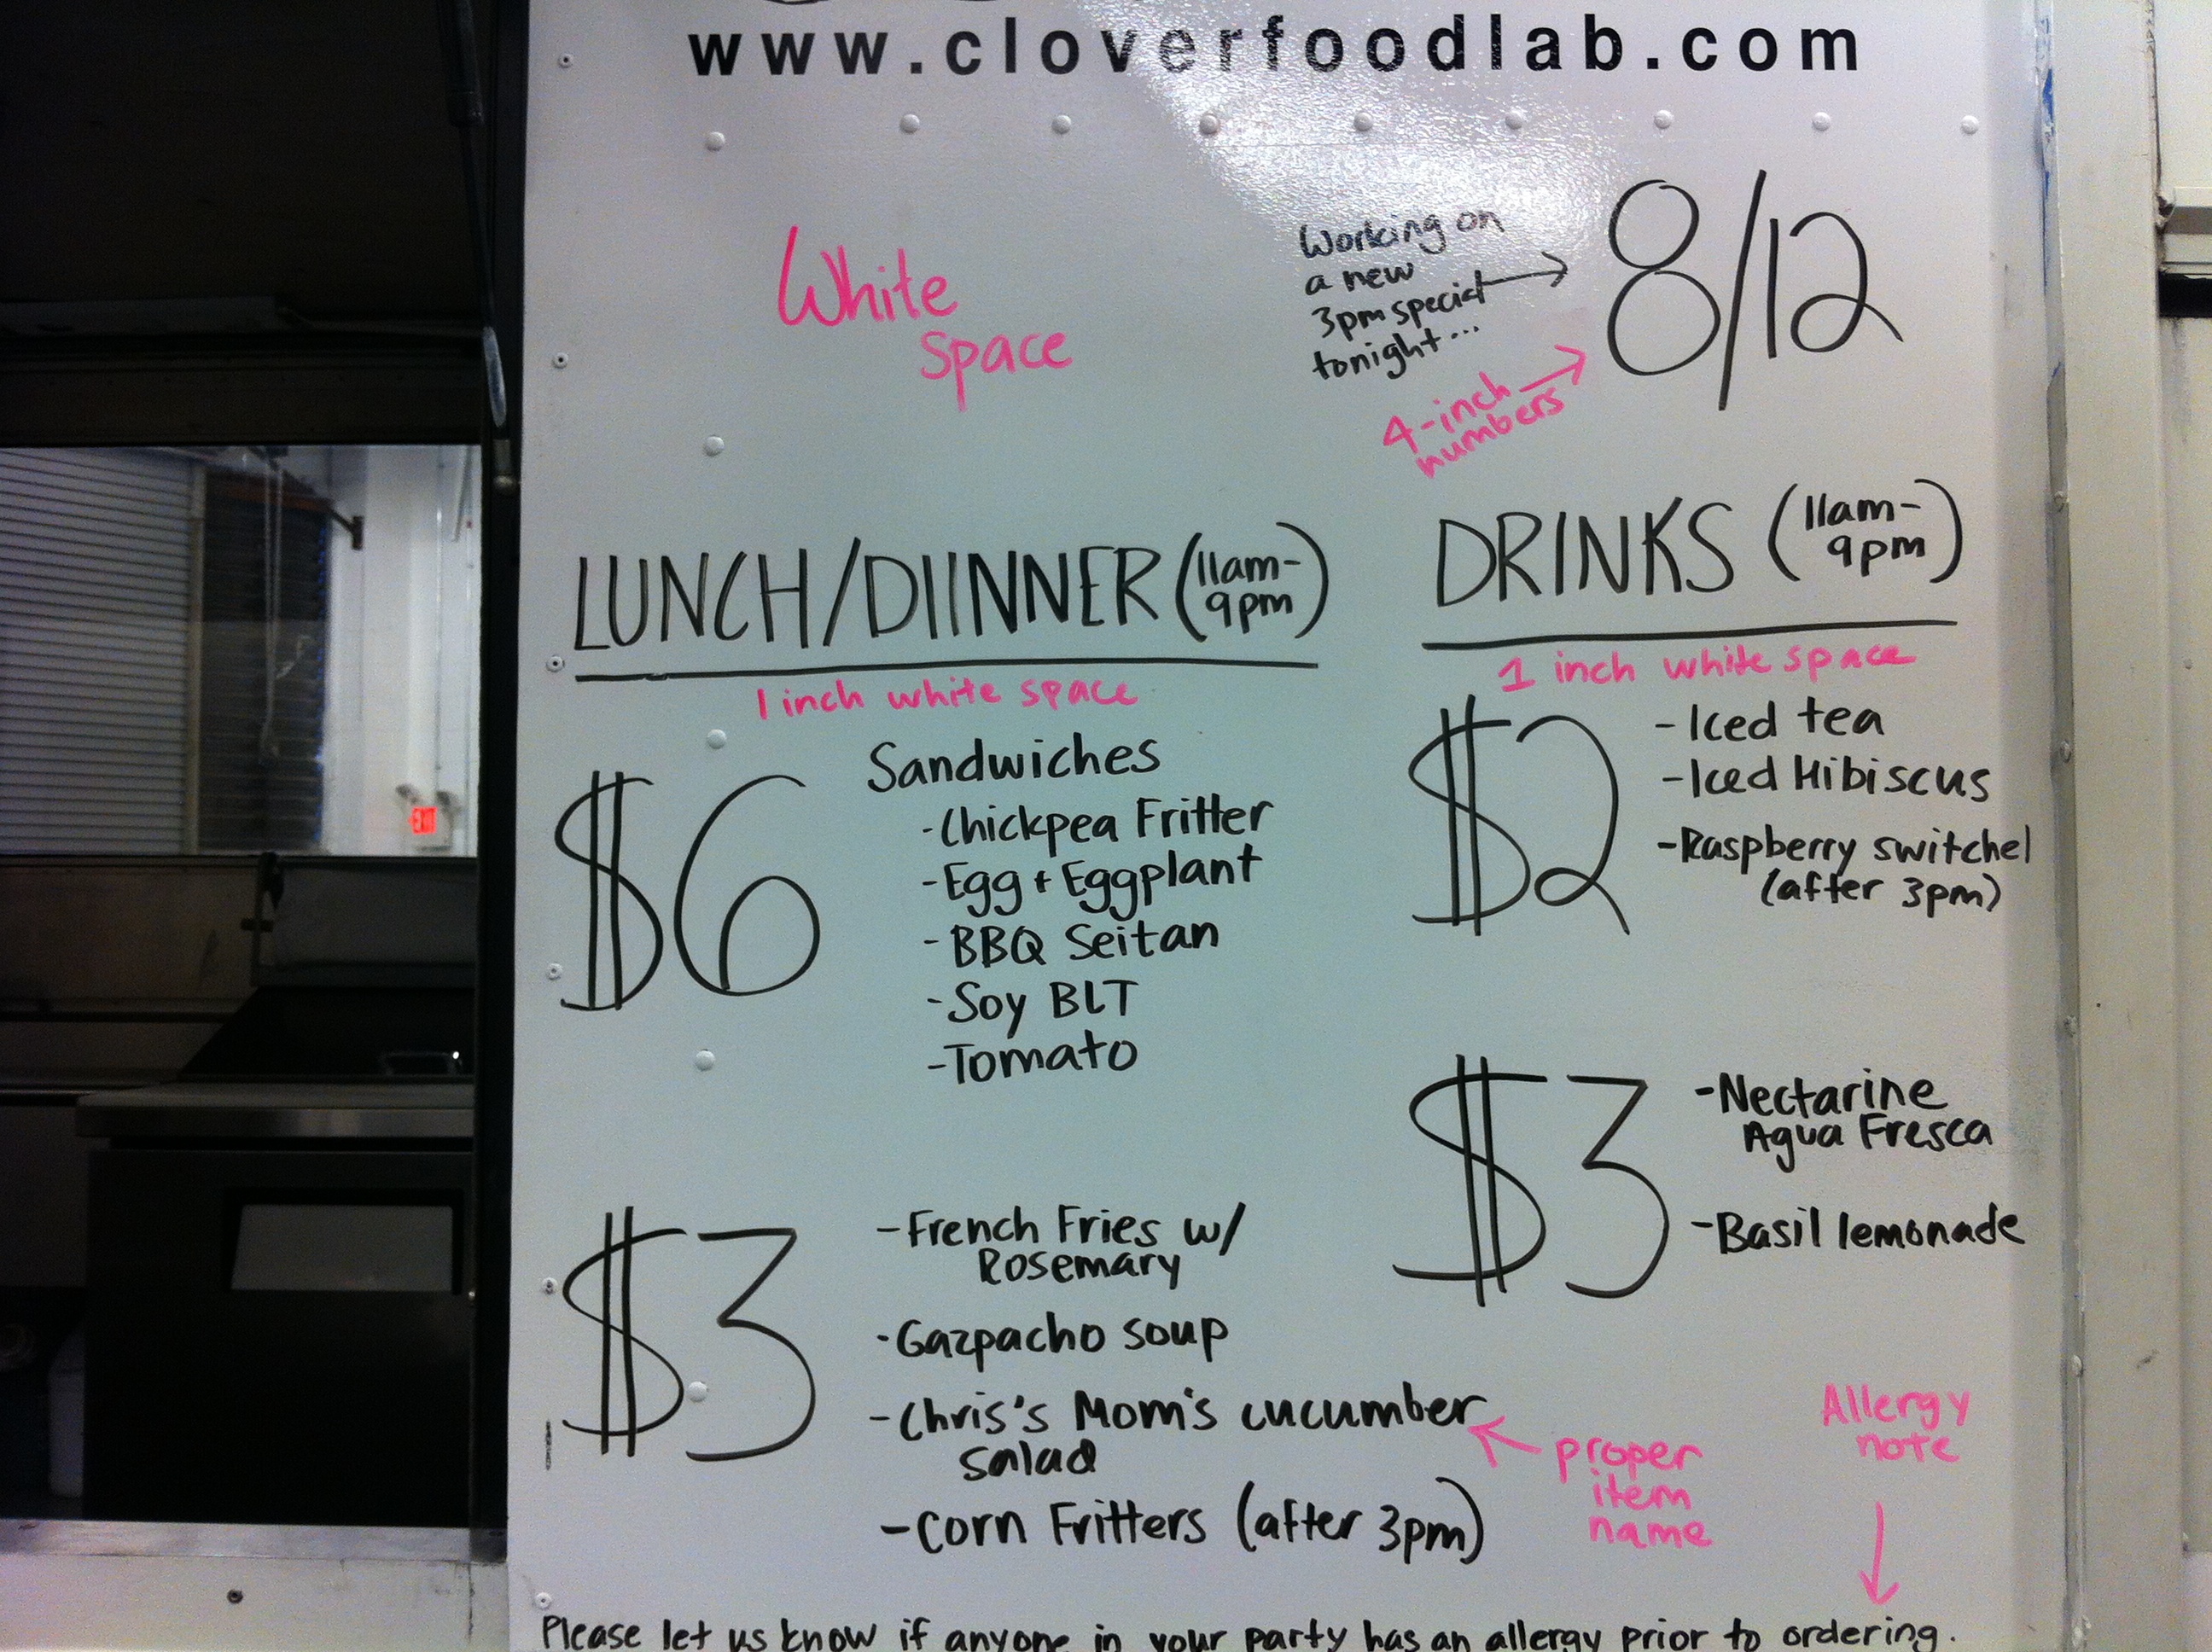 www.cloverfoodlab.com
White
Space
Working on
a new
3pm special
tonight...
8/12
4-inch
numbers
LUNCH/DIINNER (11am-
9pm)
1 inch white space
$6
Sandwiches
-Chickpea Fritter
-Egg + Eggplant
-BBQ Seitan
-Soy BLT
-Tomato
$3
-French Fries w/
Rosemary
-Gazpacho soup
-Chris's Mom's cucumber
salad
-Corn Fritters (after 3pm)
proper
item
name
DRINKS (11am-
9pm)
1 inch white space
$2
-Iced tea
-Iced Hibiscus
-Raspberry switchel
(after 3pm)
$3
-Nectarine
Agua Fresca
-Basil lemonade
Allergy
note
Please let us know if anyone in your party has an allergy prior to ordering.
EXIT